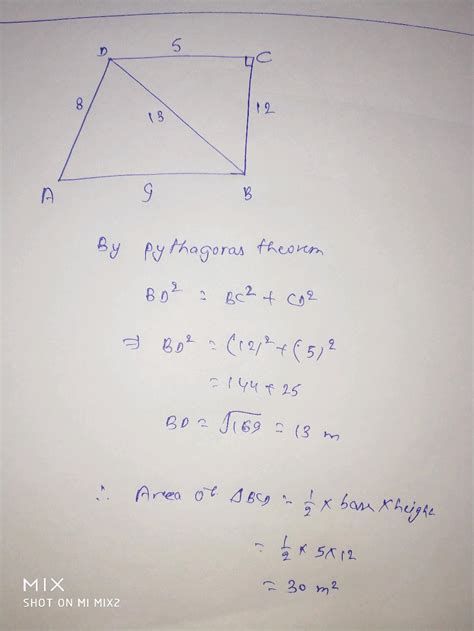 D 5 C
8 13 12
A 9 B
By pythagoras theorem
BD² = BC² + CD²
⇒ BD² = (12)² + (5)²
= 144 + 25
BD = √169 = 13 m
∴ Area of ΔBCD = 1/2 × base × height
= 1/2 × 5 × 12
= 30 m²
MIX
SHOT ON MI MIX2